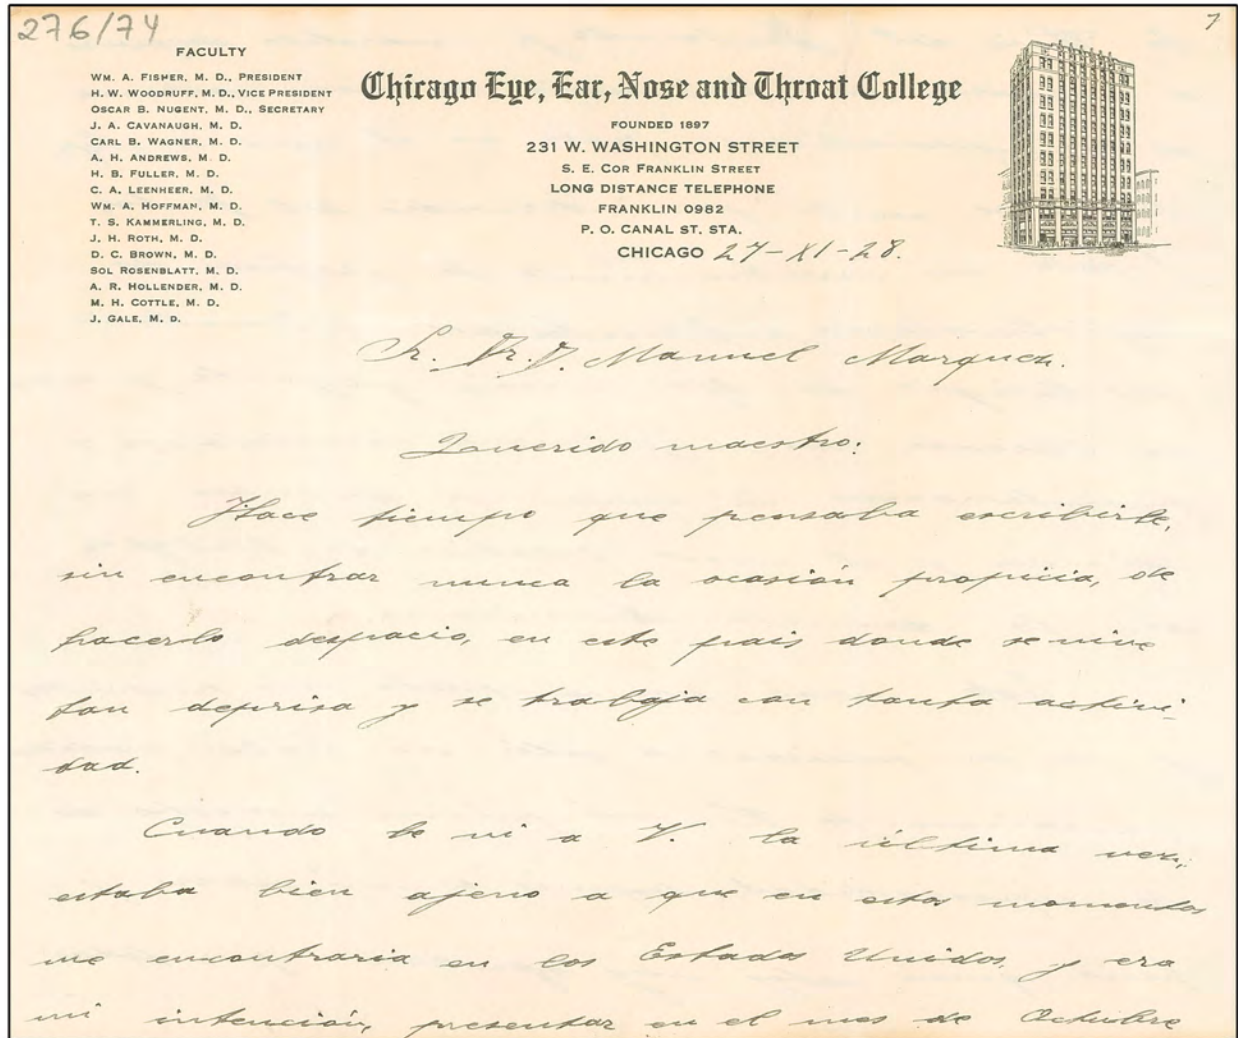 276/74
7
FACULTY
WM. A. FISHER, M. D., PRESIDENT
H. W. WOODRUFF, M. D., VICE PRESIDENT
OSCAR B. NUGENT, M. D., SECRETARY
J. A. CAVANAUGH, M. D.
CARL B. WAGNER, M. D.
A. H. ANDREWS, M. D.
H. B. FULLER, M. D.
C. A. LEENHEER, M. D.
WM. A. HOFFMAN, M. D.
T. S. KAMMERLING, M. D.
J. H. ROTH, M. D.
D. C. BROWN, M. D.
SOL ROSENBLATT, M. D.
A. R. HOLLENDER, M. D.
M. H. COTTLE, M. D.
J. GALE, M. D.
Chicago Eye, Ear, Nose and Throat College
FOUNDED 1897
231 W. WASHINGTON STREET
S. E. COR FRANKLIN STREET
LONG DISTANCE TELEPHONE
FRANKLIN 0982
P. O. CANAL ST. STA.
CHICAGO 27-XI-28.
Sr. Dr. D. Manuel Marquez.
Querido maestro:
Hace tiempo que pensaba escribirle,
sin encontrar nunca la ocasión propicia, de
hacerlo despacio, en este pais donde se vive
tan deprisa y se trabaja con tanta activi-
dad.
Cuando le vi a V. la última vez,
estaba bien ajeno a que en estos momentos
me encontraria en los Estados Unidos, y era
mi intención, presentar en el mes de Octubre